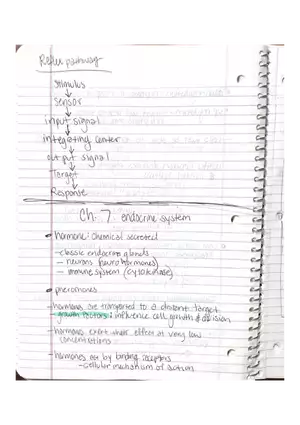 Reflex pathway
Stimulus
Sensor
input signal
integrating center
output signal
Target
Response
Ch. 7: endocrine system
• hormone: chemical secreted
- classic endocrine glands
- neurons (neurohormones)
- immune system (cytokines)
• pheromones
- hormones are transported to a distant target
- growth factors: influence cell growth & division
- hormones exert their effect at very low
concentrations
- hormones act by binding receptors
- cellular mechanism of action